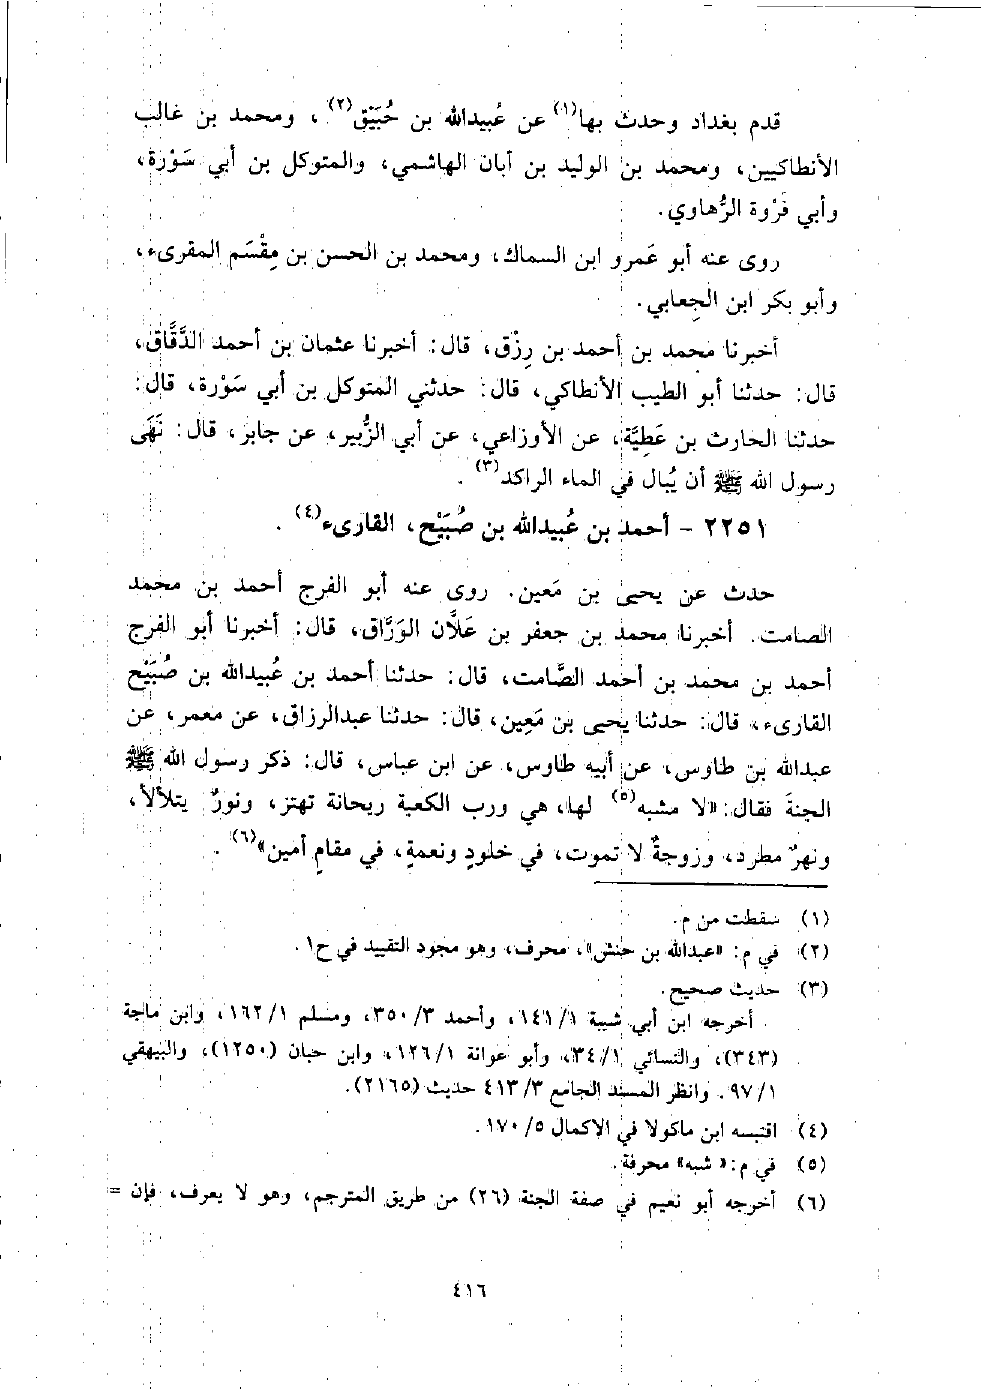 قدم بغداد وحدث بها(١) عن عُبيدالله بن خُبَيْق(٢)، ومحمد بن غالب
الأنطاكيين، ومحمد بن الوليد بن أبان الهاشمي، والمتوكل بن أبي سَوْرة،
وأبي فَرْوة الرُّهاوي.
روى عنه أبو عَمرو ابن السماك، ومحمد بن الحسن بن مِقْسَم المقرىء،
وأبو بكر ابن الجِعابي.
أخبرنا محمد بن أحمد بن رِزْق، قال: أخبرنا عثمان بن أحمد الدَّقَّاق،
قال: حدثنا أبو الطيب الأنطاكي، قال: حدثني المتوكل بن أبي سَوْرة، قال:
حدثنا الحارث بن عَطِيَّة، عن الأوزاعي، عن أبي الزُّبير، عن جابر، قال: نَهَى
رسول الله ﷺ أن يُبال في الماء الراكد(٣).
٢٢٥١ - أحمد بن عُبيدالله بن صُبَيْح، القارىء(٤).
حدث عن يحيى بن مَعين. روى عنه أبو الفرج أحمد بن محمد
الصامت. أخبرنا محمد بن جعفر بن عَلَّان الوَرَّاق، قال: أخبرنا أبو الفرج
أحمد بن محمد بن أحمد الصَّامت، قال: حدثنا أحمد بن عُبيدالله بن صُبَيْح
القارىء، قال: حدثنا يحيى بن مَعِين، قال: حدثنا عبدالرزاق، عن معمر، عن
عبدالله بن طاوس، عن أبيه طاوس، عن ابن عباس، قال: ذكر رسول الله ﷺ
الجنةَ فقال: «لا مشبه(٥) لها، هي ورب الكعبة ريحانة تهتز، ونورٌ يتلألأ،
ونهرٌ مطرد، وزوجةٌ لا تموت، في خلودٍ ونعمةٍ، في مقامٍ أمين»(٦).
(١) سقطت من م.
(٢) في م: «عبدالله بن حنش»، محرف، وهو مجود التقييد في ح١.
(٣) حديث صحيح.
أخرجه ابن أبي شيبة ١/ ١٤١، وأحمد ٣/ ٣٥٠، ومسلم ١/ ١٦٢، وابن ماجة
(٣٤٣)، والنسائي ١/ ٣٤، وأبو عوانة ١/ ١٢٦، وابن حبان (١٢٥٠)، والبيهقي
١/ ٩٧. وانظر المسند الجامع ٣/ ٤١٣ حديث (٢١٦٥).
(٤) اقتبسه ابن ماكولا في الإكمال ٥/ ١٧٠.
(٥) في م: «شبه» محرفة.
(٦) أخرجه أبو نعيم في صفة الجنة (٢٦) من طريق المترجم، وهو لا يعرف، فإن =
٤١٦